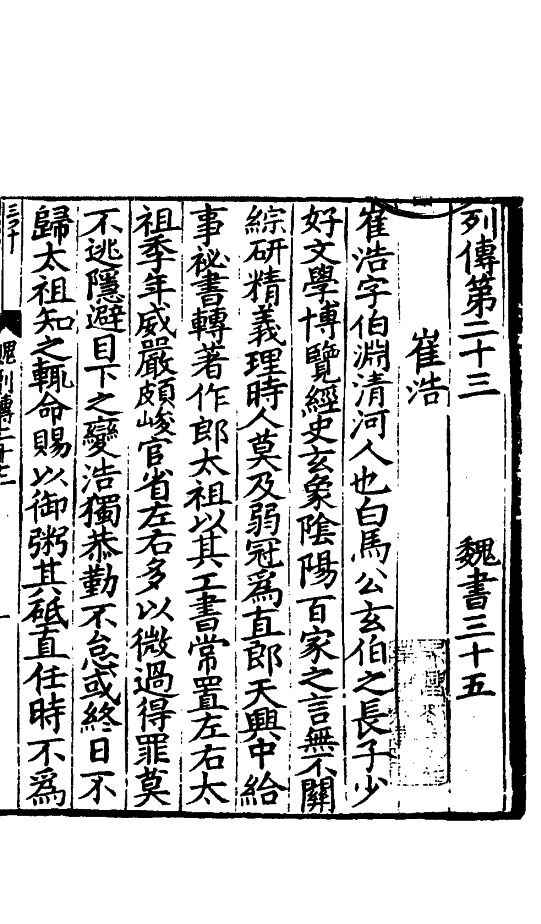 列傳第二十三　魏書三十五
崔浩
崔浩字伯淵清河人也白馬公玄伯之長子少
好文學博覽經史玄象陰陽百家之言無不關
綜研精義理時人莫及弱冠爲直郎天興中給
事祕書轉著作郎太祖以其工書常置左右太
祖季年威嚴頗峻宮省左右多以微過得罪莫
不逃隱避目下之變浩獨恭勤不怠或終日不
歸太祖知之輒命賜以御粥其砥直任時不爲
魏列傳二十三
一